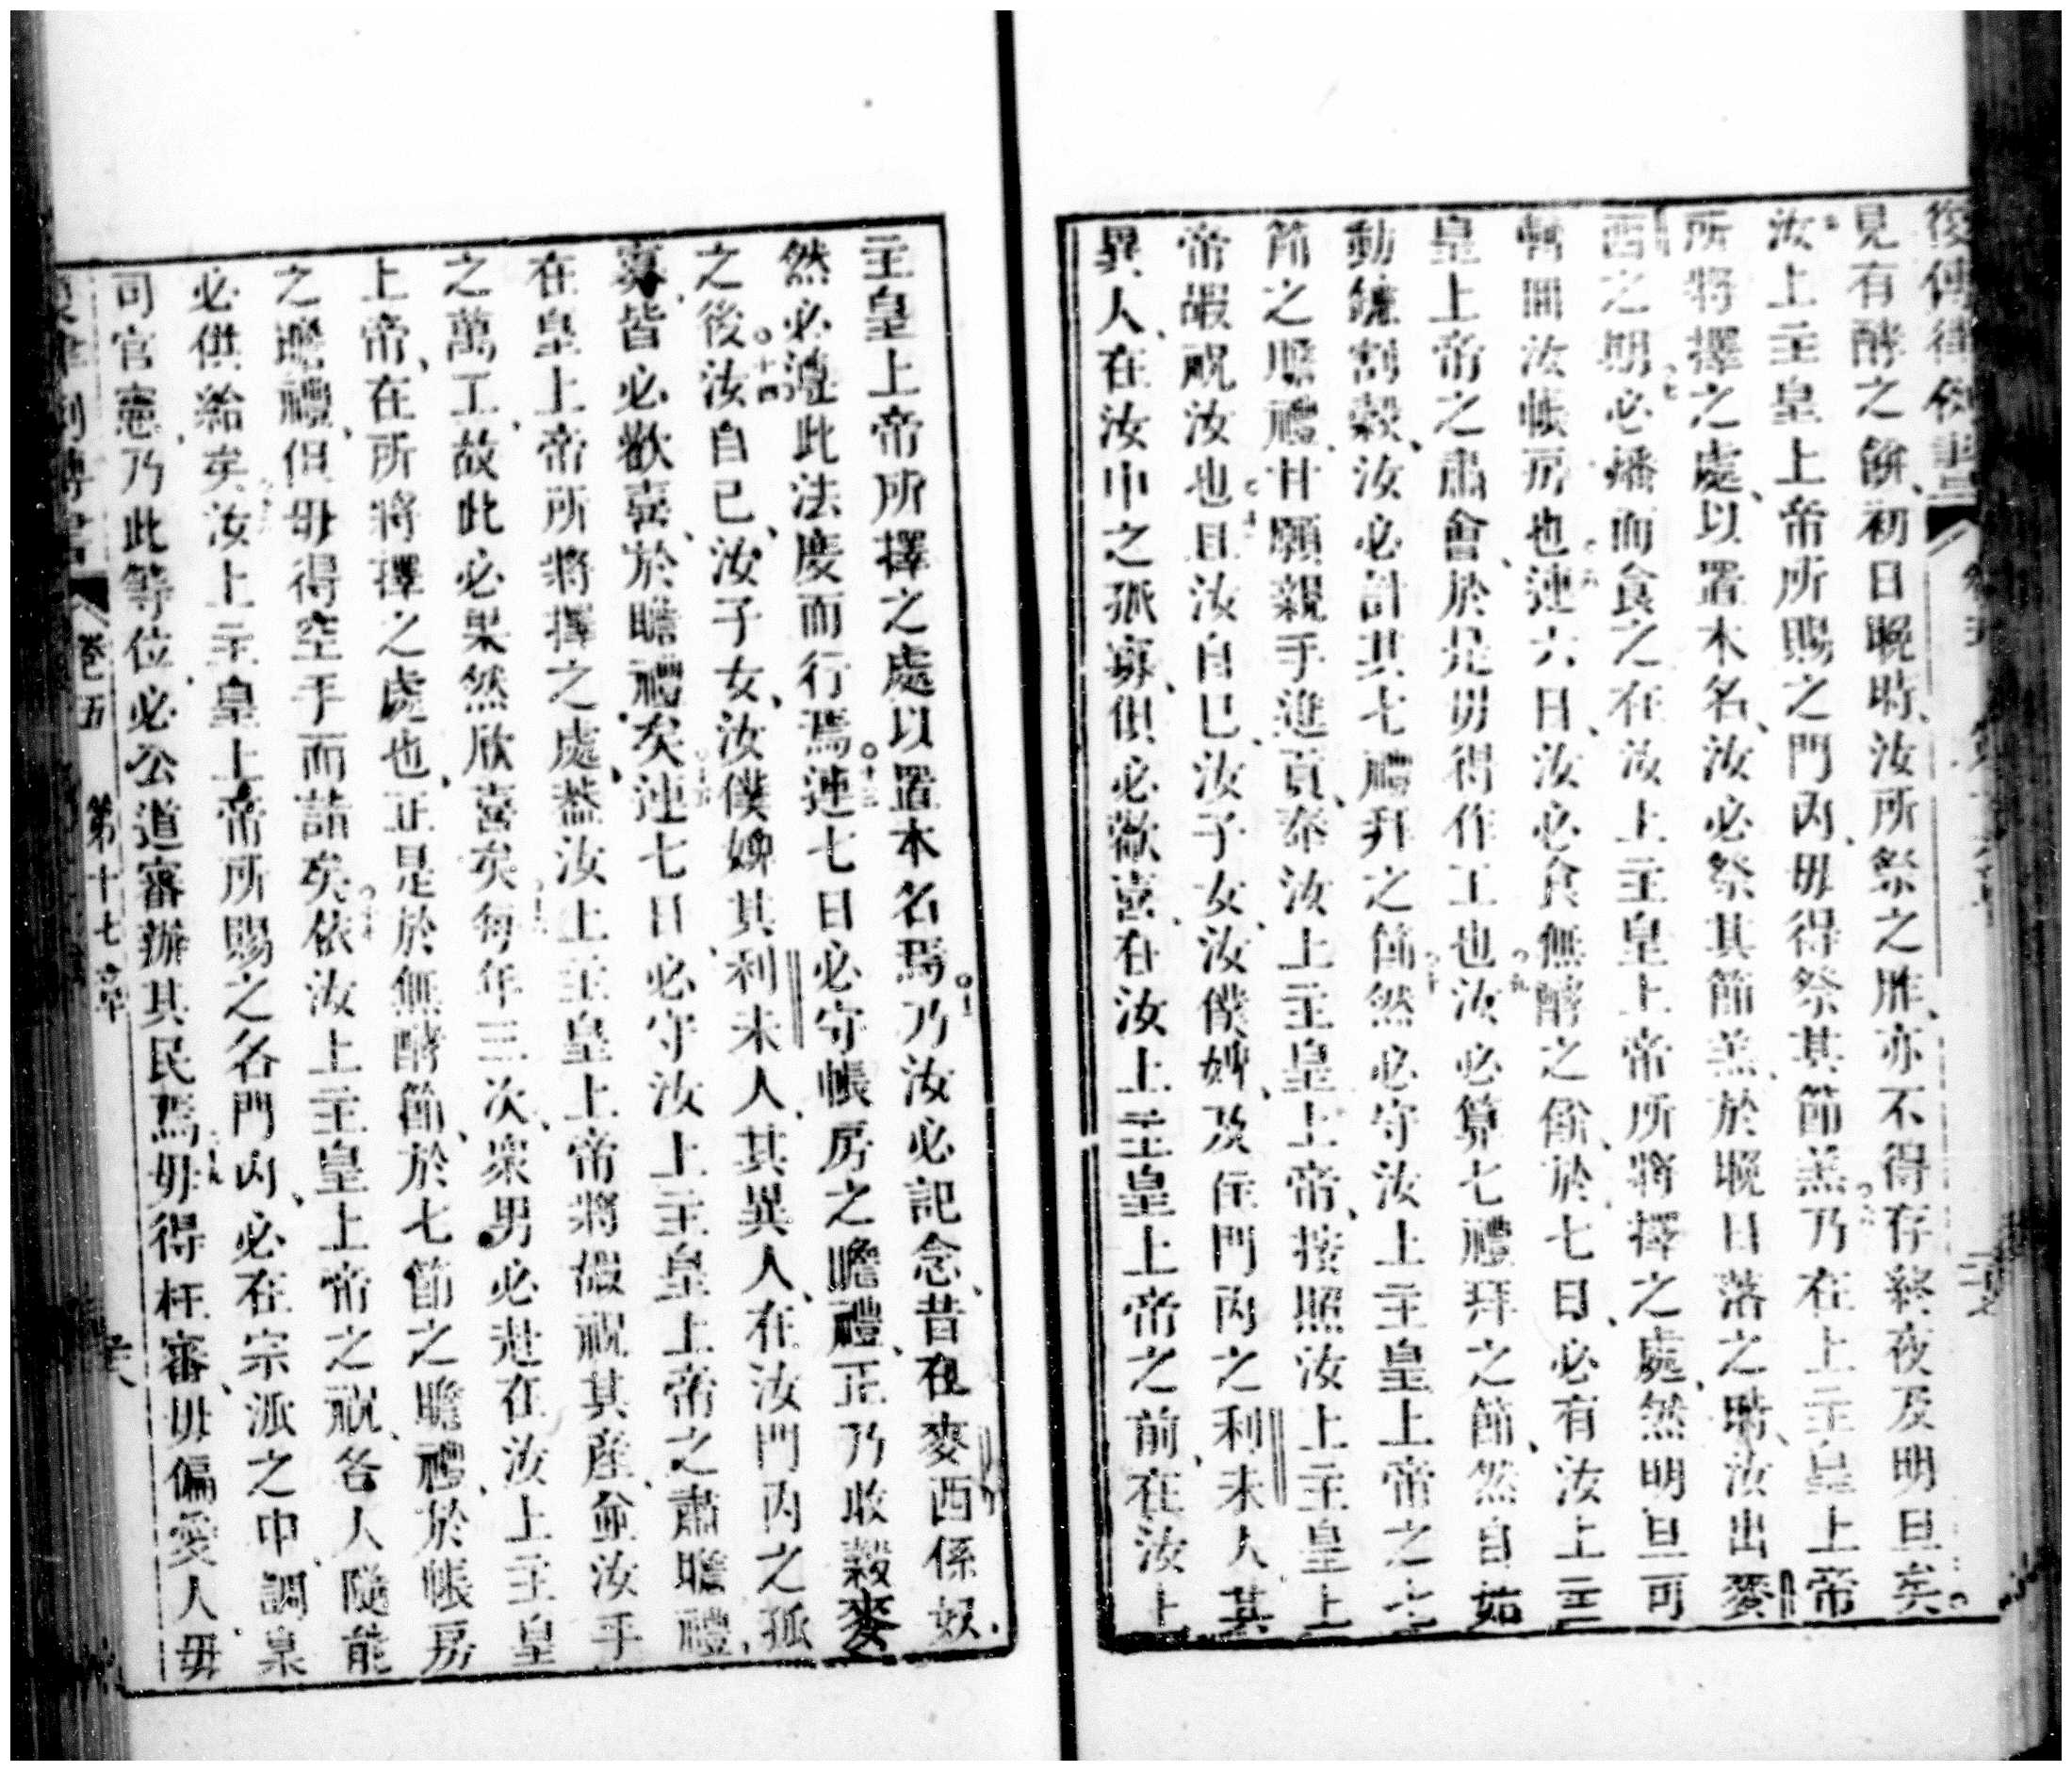 復傳律例書
見有酵之餅、初日晚時、汝所祭之胙、亦不得存終夜及明旦矣。
汝上主皇上帝所賜之門內、毋得祭其節羔乃在上主皇上帝
所將擇之處、以置木名、汝必祭其節羔、於晚日落之時、汝出麥
西之期必燔而食之在汝上主皇上帝所將擇之處、然明旦可
暫回汝帳房也連六日、汝必食無酵之餅、於七日、必有汝上主
皇上帝之肅會、於是毋得作工也汝必算七禮拜之節、然自始
動鐮割穀、汝必計其七禮拜之節然必守汝上主皇上帝之七
節之瞻禮、甘願親手進貢、奉汝上主皇上帝、按照汝上主皇上
帝嘏祝汝也且汝自己、汝子女、汝僕婢、及住門內之利未人其
異人、在汝中之孤寡、俱必歡喜、在汝上主皇上帝之前、在汝上
主皇上帝所擇之處以置木名焉乃汝必記念、昔在麥西係奴、
然必遵此法度而行焉連七日必守帳房之瞻禮、正乃收穀麥
之後汝自己、汝子女、汝僕婢、其利未人、其異人、在汝門內之孤
寡、皆必歡喜、於瞻禮矣連七日必守汝上主皇上帝之肅瞻禮、
在皇上帝所將擇之處、蓋汝上主皇上帝將嘏祝其產、並汝手
之萬工、故此必果然欣喜矣每年三次、眾男必赴在汝上主皇
上帝、在所將擇之處也、正是於無酵節、於七節之瞻禮、於帳房
之瞻禮、但毋得空手而詣矣依汝上主皇上帝之祝、各人隨能
必供給矣汝上主皇上帝所賜之各門內、必在宗派之中、調臬
司官憲、乃此等位、必公道審辦其民焉毋得枉審、毋偏愛人、毋
卷五 第十七章